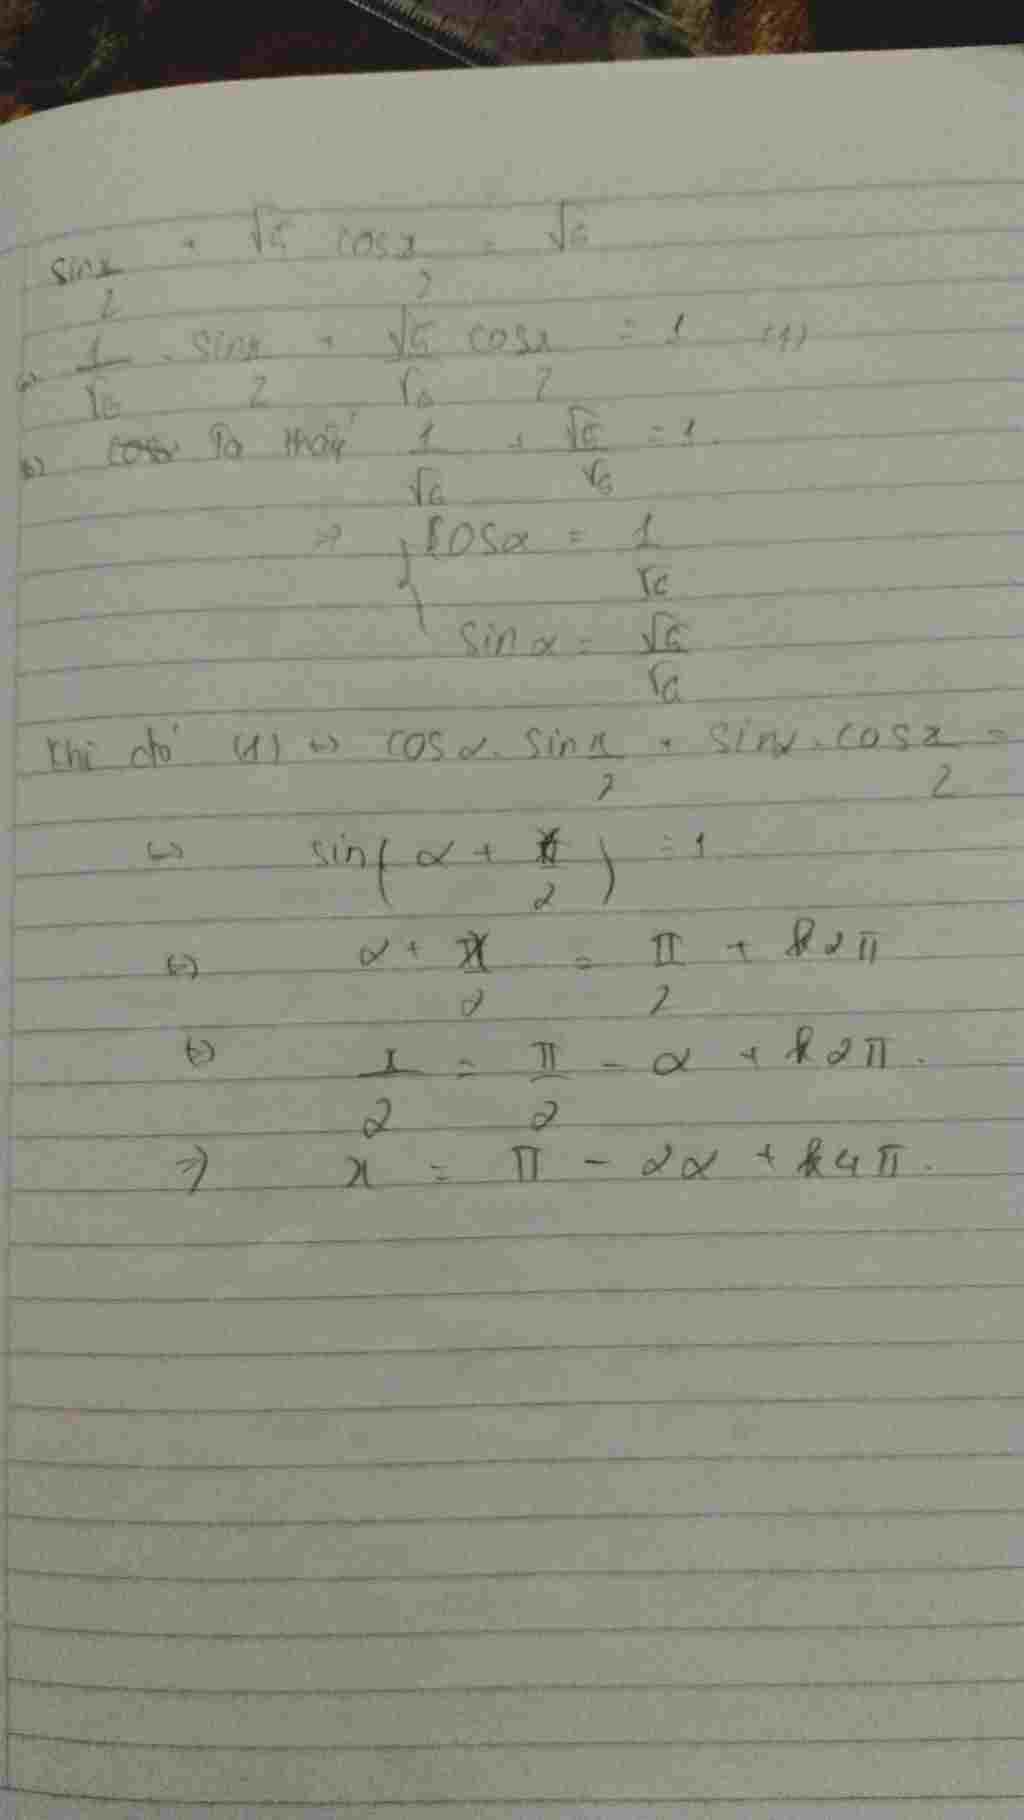 sin x/2 + √5 cos x/2 = √6
<=> 1/√6 . sin x/2 + √5/√6 cos x/2 = 1 (1)
<=> Ta thấy 1/√6 + √5/√6 = 1.
=> { cos α = 1/√6
sin α = √5/√6
Khi đó (1) <=> cos α . sin x/2 + sin α . cos x/2 =
<=> sin(α + x/2) = 1
<=> α + x/2 = π/2 + k2π
<=> x/2 = π/2 - α + k2π.
=> x = π - 2α + k4π.